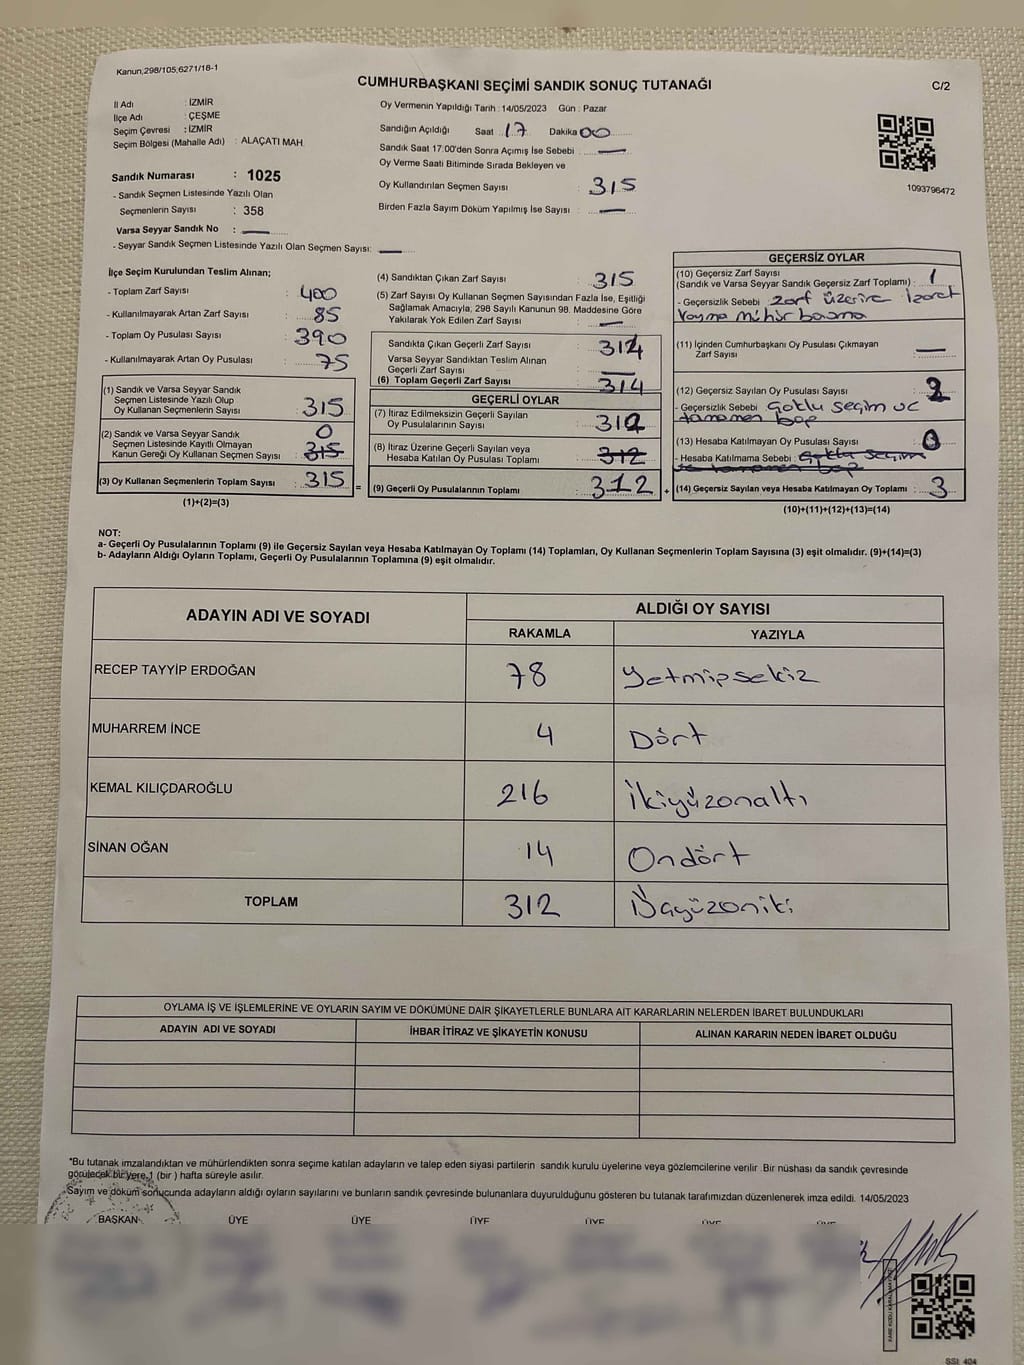 Kanun,298/105;6271/18-1
CUMHURBAŞKANI SEÇİMİ SANDIK SONUÇ TUTANAĞI
C/2
İl Adı : İZMİR
İlçe Adı : ÇEŞME
Seçim Çevresi : İZMİR
Seçim Bölgesi (Mahalle Adı) : ALAÇATI MAH.
Sandık Numarası : 1025
- Sandık Seçmen Listesinde Yazılı Olan
Seçmenlerin Sayısı : 358
Varsa Seyyar Sandık No :
- Seyyar Sandık Seçmen Listesinde Yazılı Olan Seçmen Sayısı:
Oy Vermenin Yapıldığı Tarih : 14/05/2023 Gün : Pazar
Sandığın Açıldığı Saat 17 Dakika 00
Sandık Saat 17:00'den Sonra Açımış İse Sebebi :
Oy Verme Saati Bitiminde Sırada Bekleyen ve
Oy Kullandırılan Seçmen Sayısı : 315
Birden Fazla Sayım Döküm Yapılmış İse Sayısı :
1093796472
İlçe Seçim Kurulundan Teslim Alınan;
- Toplam Zarf Sayısı : 400
- Kullanılmayarak Artan Zarf Sayısı : 85
- Toplam Oy Pusulası Sayısı : 390
- Kullanılmayarak Artan Oy Pusulası : 75
(1) Sandık ve Varsa Seyyar Sandık
Seçmen Listesinde Yazılı Olup
Oy Kullanan Seçmenlerin Sayısı : 315
(2) Sandık ve Varsa Seyyar Sandık 0
Seçmen Listesinde Kayıtlı Olmayan
Kanun Gereği Oy Kullanan Seçmen Sayısı : 315
(3) Oy Kullanan Seçmenlerin Toplam Sayısı : 315 =
(1)+(2)=(3)
(4) Sandıktan Çıkan Zarf Sayısı : 315
(5) Zarf Sayısı Oy Kullanan Seçmen Sayısından Fazla İse, Eşitliği
Sağlamak Amacıyla; 298 Sayılı Kanunun 98. Maddesine Göre
Yakılarak Yok Edilen Zarf Sayısı :
Sandıkta Çıkan Geçerli Zarf Sayısı : 314
Varsa Seyyar Sandıktan Teslim Alınan
Geçerli Zarf Sayısı :
(6) Toplam Geçerli Zarf Sayısı : 314
GEÇERLİ OYLAR
(7) İtiraz Edilmeksizin Geçerli Sayılan
Oy Pusulalarının Sayısı : 312
(8) İtiraz Üzerine Geçerli Sayılan veya
Hesaba Katılan Oy Pusulası Toplamı : 312
(9) Geçerli Oy Pusulalarının Toplamı : 312 +
GEÇERSİZ OYLAR
(10) Geçersiz Zarf Sayısı
(Sandık ve Varsa Seyyar Sandık Geçersiz Zarf Toplamı) : 1
- Geçersizlik Sebebi : zarf üzerine İşaret
koyma mühür basma
(11) İçinden Cumhurbaşkanı Oy Pusulası Çıkmayan
Zarf Sayısı :
(12) Geçersiz Sayılan Oy Pusulası Sayısı : 2
- Geçersizlik Sebebi : Çoklu seçim ve
tamamen boş
(13) Hesaba Katılmayan Oy Pusulası Sayısı : 0
- Hesaba Katılmama Sebebi : Çoklu seçim
ve tamamen boş
(14) Geçersiz Sayılan veya Hesaba Katılmayan Oy Toplamı : 3
(10)+(11)+(12)+(13)=(14)
NOT:
a- Geçerli Oy Pusulalarının Toplamı (9) ile Geçersiz Sayılan veya Hesaba Katılmayan Oy Toplamı (14) Toplamları, Oy Kullanan Seçmenlerin Toplam Sayısına (3) eşit olmalıdır. (9)+(14)=(3)
b- Adayların Aldığı Oyların Toplamı, Geçerli Oy Pusulalarının Toplamına (9) eşit olmalıdır.
ADAYIN ADI VE SOYADI
ALDIĞI OY SAYISI
RAKAMLA YAZIYLA
RECEP TAYYİP ERDOĞAN 78 Yetmişsekiz
MUHARREM İNCE 4 Dört
KEMAL KILIÇDAROĞLU 216 İkiyüzonaltı
SİNAN OĞAN 14 Ondört
TOPLAM 312 Üçyüzoniki
OYLAMA İŞ VE İŞLEMLERİNE VE OYLARIN SAYIM VE DÖKÜMÜNE DAİR ŞİKAYETLERLE BUNLARA AİT KARARLARIN NELERDEN İBARET BULUNDUKLARI
ADAYIN ADI VE SOYADI İHBAR İTİRAZ VE ŞİKAYETİN KONUSU ALINAN KARARIN NEDEN İBARET OLDUĞU
*Bu tutanak imzalandıktan ve mühürlendikten sonra seçime katılan adayların ve talep eden siyasi partilerin sandık kurulu üyelerine veya gözlemcilerine verilir. Bir nüshası da sandık çevresinde
görülecek bir yere 1 (bir ) hafta süreyle asılır.
Sayım ve döküm sonucunda adayların aldığı oyların sayılarını ve bunların sandık çevresinde bulunanlara duyurulduğunu gösteren bu tutanak tarafımızdan düzenlenerek imza edildi. 14/05/2023
BAŞKAN ÜYE ÜYE ÜYE ÜYE ÜYE ÜYE
SSI: 404